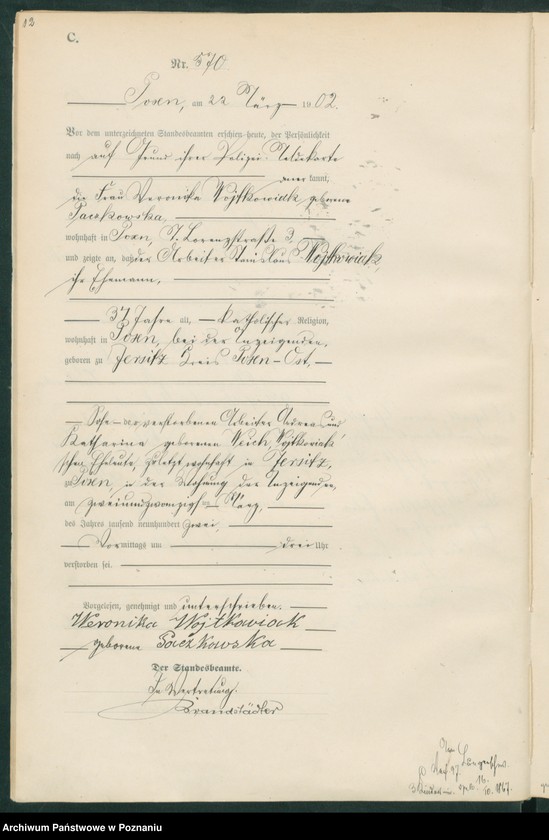 12
C.
Nr. 570
Posen, am 22 März 1902.
Vor dem unterzeichneten Standesbeamten erschien heute, der Persönlichkeit
nach auf Grund ihrer Polizei Meldekarte
kannt,
die Frau Veronika Wojtkowiak geborene
Paczkowska,
wohnhaft in Posen, St. Lorenzstraße 3,
und zeigte an, daß der Arbeiter Stanislaus Wojtkowiak,
ihr Ehemann,
37 Jahre alt, katholischer Religion,
wohnhaft in Posen, bei der Anzeigenden,
geboren zu Jersitz Kreis Posen-Ost,
Sohn der verstorbenen Arbeiter Andreas und
Katharina geborenen Wojtkowiak'
schen Eheleute, zuletzt wohnhaft in Jersitz,
zu Posen, in der Wohnung der Anzeigenden,
am zweiundzwanzigsten März,
des Jahres tausend neunhundert zwei,
Vormittags um drei Uhr
verstorben sei.
Vorgelesen, genehmigt und unterschrieben.
Weronika Wojtkowiak
geborene Paczkowska
Der Standesbeamte.
In Vertretung.
Brandstädter
10. 1867.
Archiwum Państwowe w Poznaniu